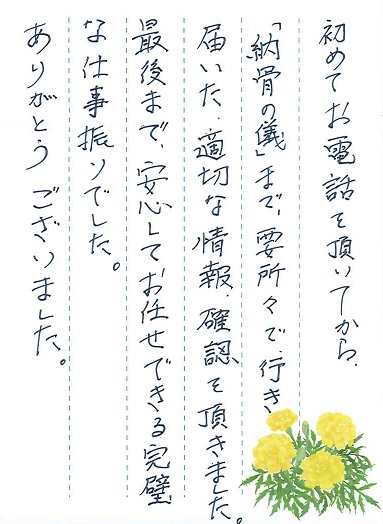 初めてお電話を頂いてから、
「納骨の儀」まで、要所々で、行き
届いた、適切な情報、確認を頂きました。
最後まで、安心してお任せできる完璧
な仕事振りでした。
ありがとうございました。